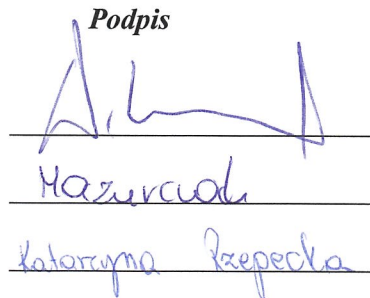 Podpis
Mazurczak
Katarzyna Rzepecka